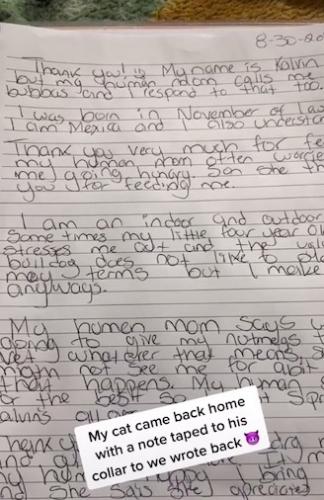 8-30-20
Thank you! :) My name is Kalvin
but my human mom calls me
bubbas and I respond to that too.
I was born in November of Las
I am Mexica and I also understan
Thank you very much for fe
my human mom often worries
me going hungry. Son she th
you for feeding me.
I am an indoor and outdoor
Some times my little four year ol
stresses me out and the
bull dog does not like to pla
my terms but I make
anyways.
My human mom says w
along to give my nutmegs t
vet, whatever that means, s
might not see me for abit
that happens. My human
for the best so
alvin's all
Thank y
and
my hum
and She said she apreciates
My cat came back home
with a note taped to his
collar to we wrote back 😈